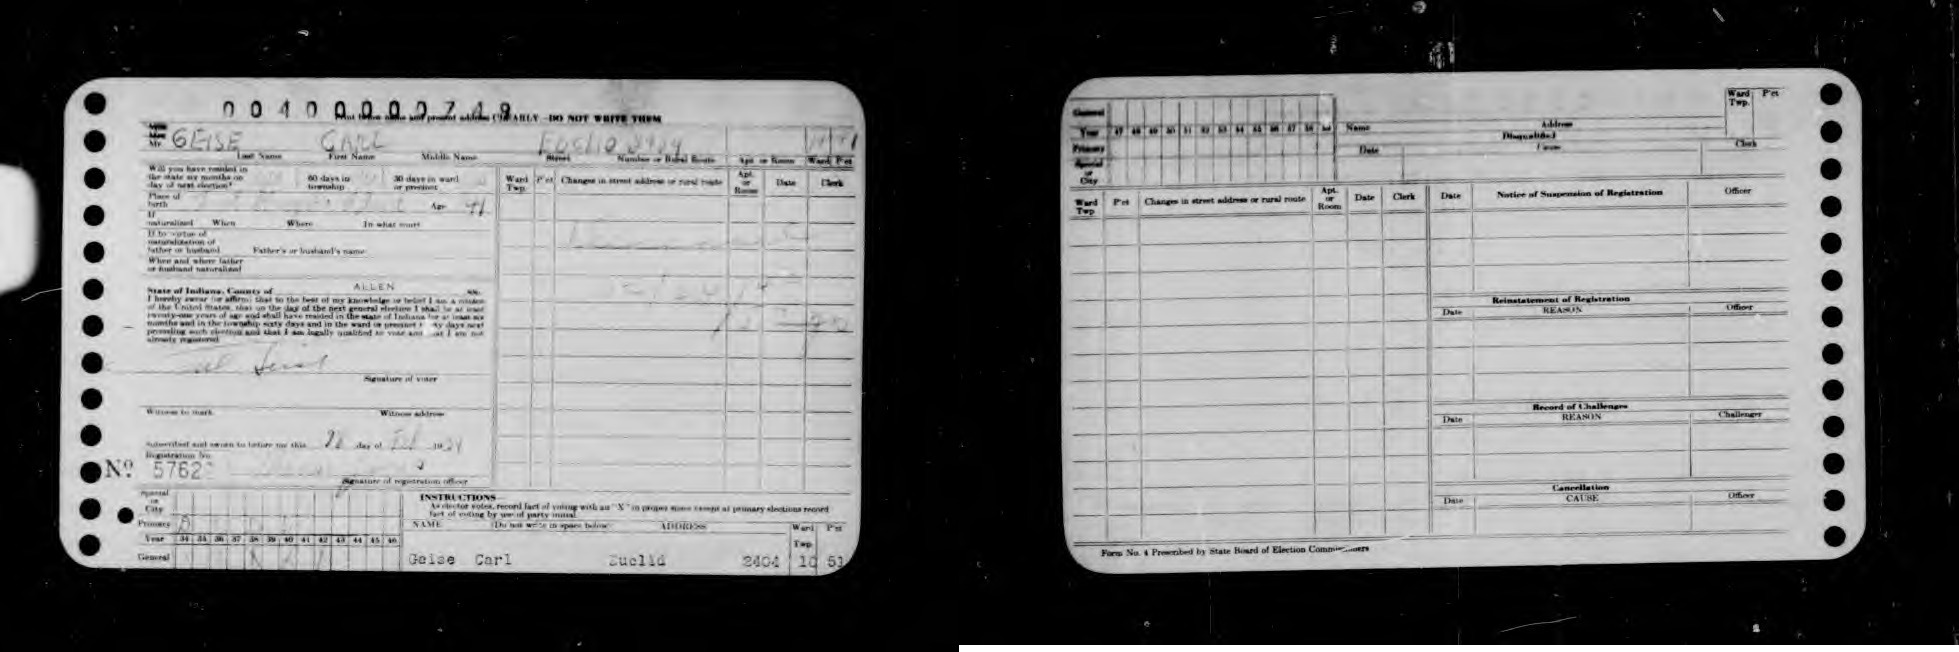 00400000749
Print below name and present address CLEARLY—DO NOT WRITE THEM
Miss
Mrs.
Mr. GEISE CARL EUCLID 2404
Last Name First Name Middle Name Street Number or Rural Route Apt. or Room Ward P'ct
Will you have resided in
the state six months on
day of next election?
60 days in
township
30 days in ward
or precinct
Ward
Twp.
P'ct
Changes in street address or rural route
Apt.
or
Room
Date
Clerk
Place of
birth
Age 41
If
naturalized When Where In what court
If by virtue of
naturalization of
father or husband Father's or husband's name
When and where father
or husband naturalized
State of Indiana, County of ALLEN ss:
I hereby swear (or affirm) that to the best of my knowledge or belief I am a citizen
of the United States, that on the day of the next general election I shall be at least
twenty-one years of age and shall have resided in the state of Indiana for at least six
months and in the township sixty days and in the ward or precinct days next
preceding such election and that I am legally qualified to vote and that I am not
already registered.
Signature of voter
Witness to mark Witness address
Subscribed and sworn to before me this day of 19
Registration No.
No. 5762
Signature of registration officer
Special
or
City
Primary
Year 34 35 36 37 38 39 40 41 42 43 44 45 46
General
INSTRUCTIONS—
As elector votes, record fact of voting with an "X" in proper space except at primary elections record
fact of voting by use of party initial.
NAME (Do not write in space below) ADDRESS Ward
Twp. P'ct
Geise Carl Euclid 2404 10 51
General
Year 47 48 49 50 51 52 53 54 55 56 57 58 59
Primary
Special
or
City
Name Address
Ward
Twp.
P'ct
Disqualified
Date Cause Clerk
Ward
Twp
P'ct
Changes in street address or rural route
Apt.
or
Room
Date
Clerk
Date Notice of Suspension of Registration Officer
Reinstatement of Registration
Date REASON Officer
Record of Challenges
Date REASON Challenger
Cancellation
Date CAUSE Officer
Form No. 4 Prescribed by State Board of Election Commissioners